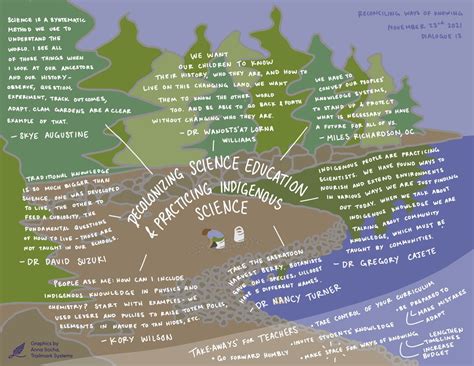 RECONCILING WAYS OF KNOWING
NOVEMBER 25TH 2021
DIALOGUE 13
SCIENCE IS A SYSTEMATIC
METHOD WE USE TO
UNDERSTAND THE
WORLD. I SEE ALL
OF THOSE THINGS WHEN
I LOOK AT OUR ANCESTORS
AND OUR HISTORY -
OBSERVE, QUESTION,
EXPERIMENT, TRACK OUTCOMES,
ADAPT. CLAM GARDENS ARE A CLEAR
EXAMPLE OF THAT.
- SKYE AUGUSTINE
WE WANT
OUR CHILDREN TO KNOW
THEIR HISTORY, WHO THEY ARE, AND HOW TO
LIVE ON THIS CHANGING LAND. WE WANT
THEM TO KNOW THE OTHER WORLD
TOO. AND BE ABLE TO GO BACK & FORTH
WITHOUT CHANGING WHO THEY ARE.
- DR WANOSTS'A7 LORNA
WILLIAMS
WE HAVE TO
CONVEY OUR PEOPLES'
KNOWLEDGE SYSTEMS,
TO STAND UP & PROTECT
WHAT IS NECESSARY TO MAKE
A FUTURE FOR ALL OF US.
- MILES RICHARDSON, OC
DECOLONIZING SCIENCE EDUCATION
& PRACTICING INDIGENOUS
SCIENCE
TRADITIONAL KNOWLEDGE
IS SO MUCH BIGGER THAN
SCIENCE. ONE WAS DEVELOPED
TO LIVE, THE OTHER TO
FEED A CURIOSITY. THE
FUNDAMENTAL QUESTIONS
OF HOW TO LIVE - THOSE ARE
NOT TAUGHT IN OUR SCHOOLS.
- DR DAVID SUZUKI
INDIGENOUS PEOPLE ARE PRACTICING
SCIENTISTS. WE HAVE FOUND WAYS TO
NOURISH AND EXTEND ENVIRONMENTS
IN VARIOUS WAYS WE ARE JUST FINDING
OUT TODAY. WHEN WE TALK ABOUT
INDIGENOUS KNOWLEDGE WE ARE
TALKING ABOUT COMMUNITY
KNOWLEDGE, WHICH MUST BE
TAUGHT BY COMMUNITIES.
- DR GREGORY CAJETE
PEOPLE ASK ME: HOW CAN I INCLUDE
INDIGENOUS KNOWLEDGE IN PHYSICS AND
CHEMISTRY? START WITH EXAMPLES - WE
USED LEVERS AND PULLIES TO RAISE TOTEM POLES,
ELEMENTS IN NATURE TO TAN HIDES, ETC
- KORY WILSON
TAKE THE SASKATOON
HARVEST BERRY. BOTANISTS
GIVE ONE SPECIES; LILLOOET
HAVE 5 DIFFERENT NAMES.
- DR NANCY TURNER
TAKEAWAYS FOR TEACHERS
• TAKE CONTROL OF YOUR CURRICULUM
• BE PREPARED
TO MAKE
MISTAKES
• ADAPT
LENGTHEN
TIMELINES
INCREASE
BUDGET
• INVITE STUDENTS KNOWLEDGE
• GO FORWARD HUMBLY
• MAKE SPACE FOR WAYS OF KNOWING
Graphics by
Anna Rocha,
Trailmark Systems